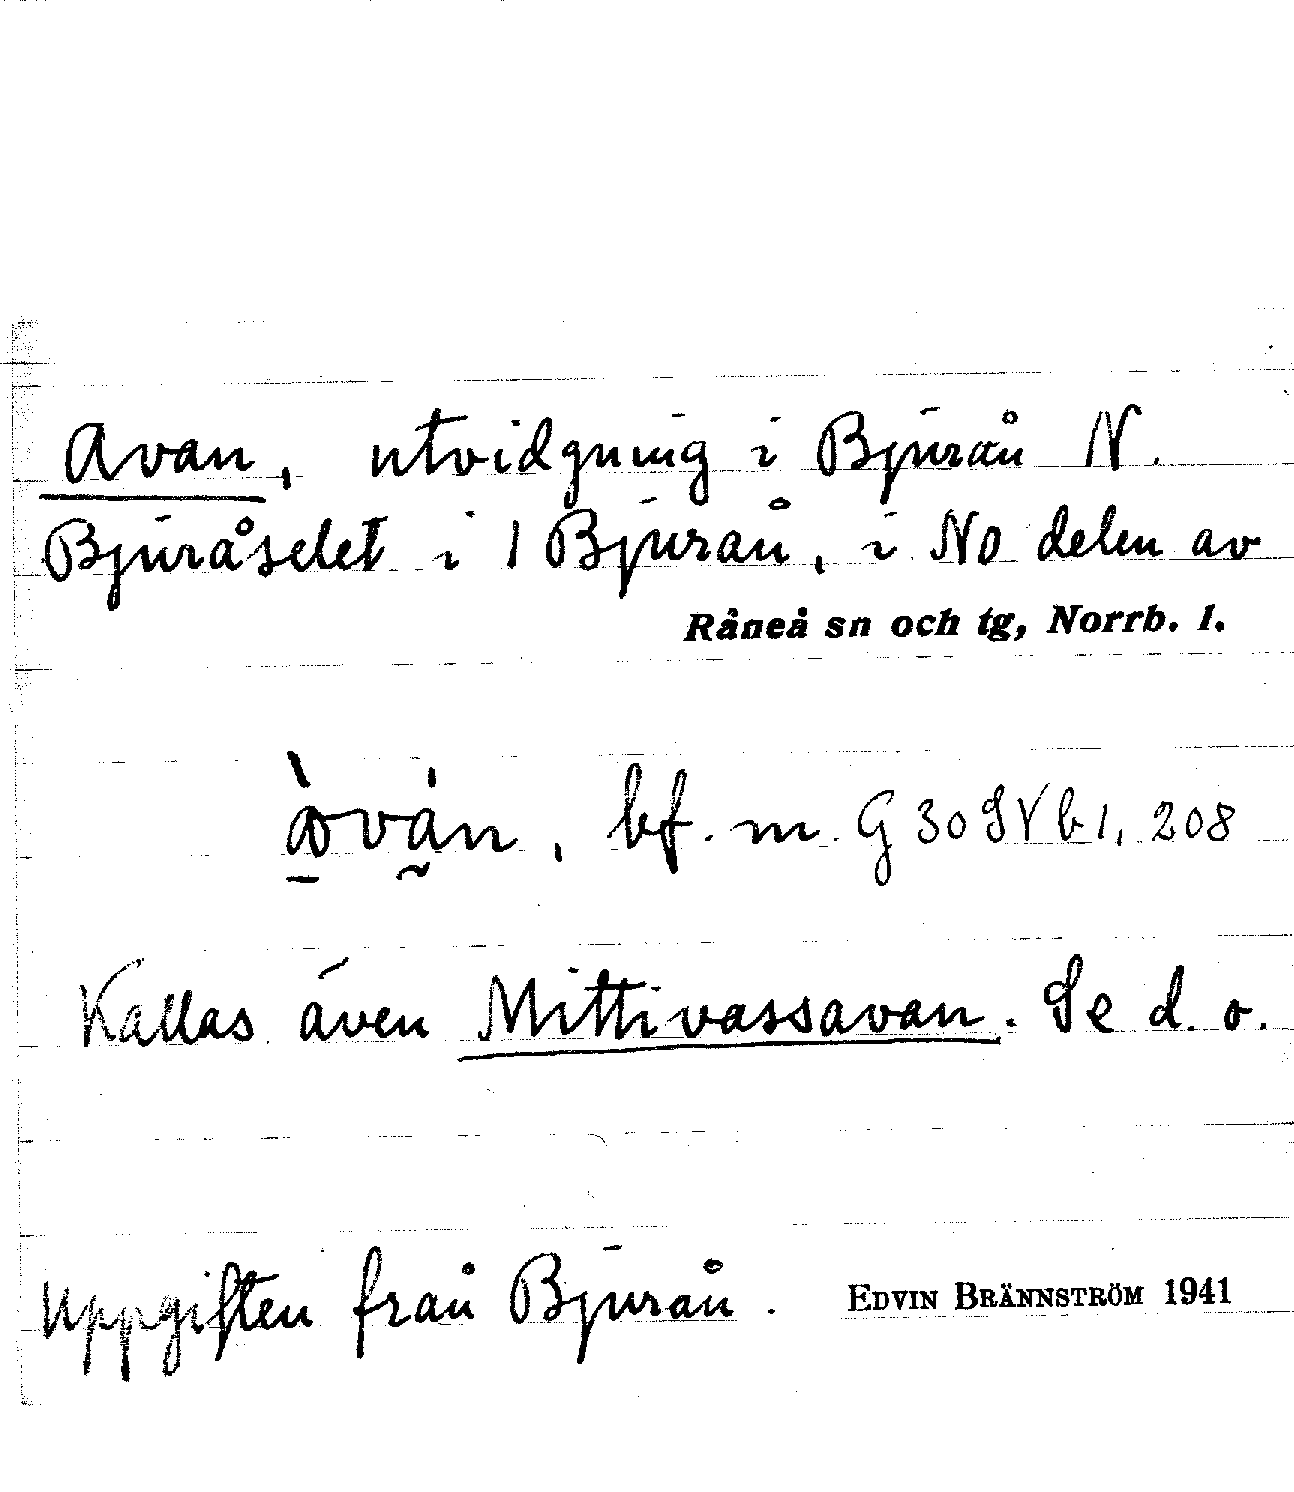 Avan, utvidgning i Bjurån N.
Bjuråselet i 1 Bjurån, i NO delen av
Råneå sn och tg, Norrb. l.
bf. m. G 30 S V b 1, 208
Kallas även Mittivassavan. Se d. o.
Uppgiften från Bjurån. EDVIN BRÄNNSTRÖM 1941